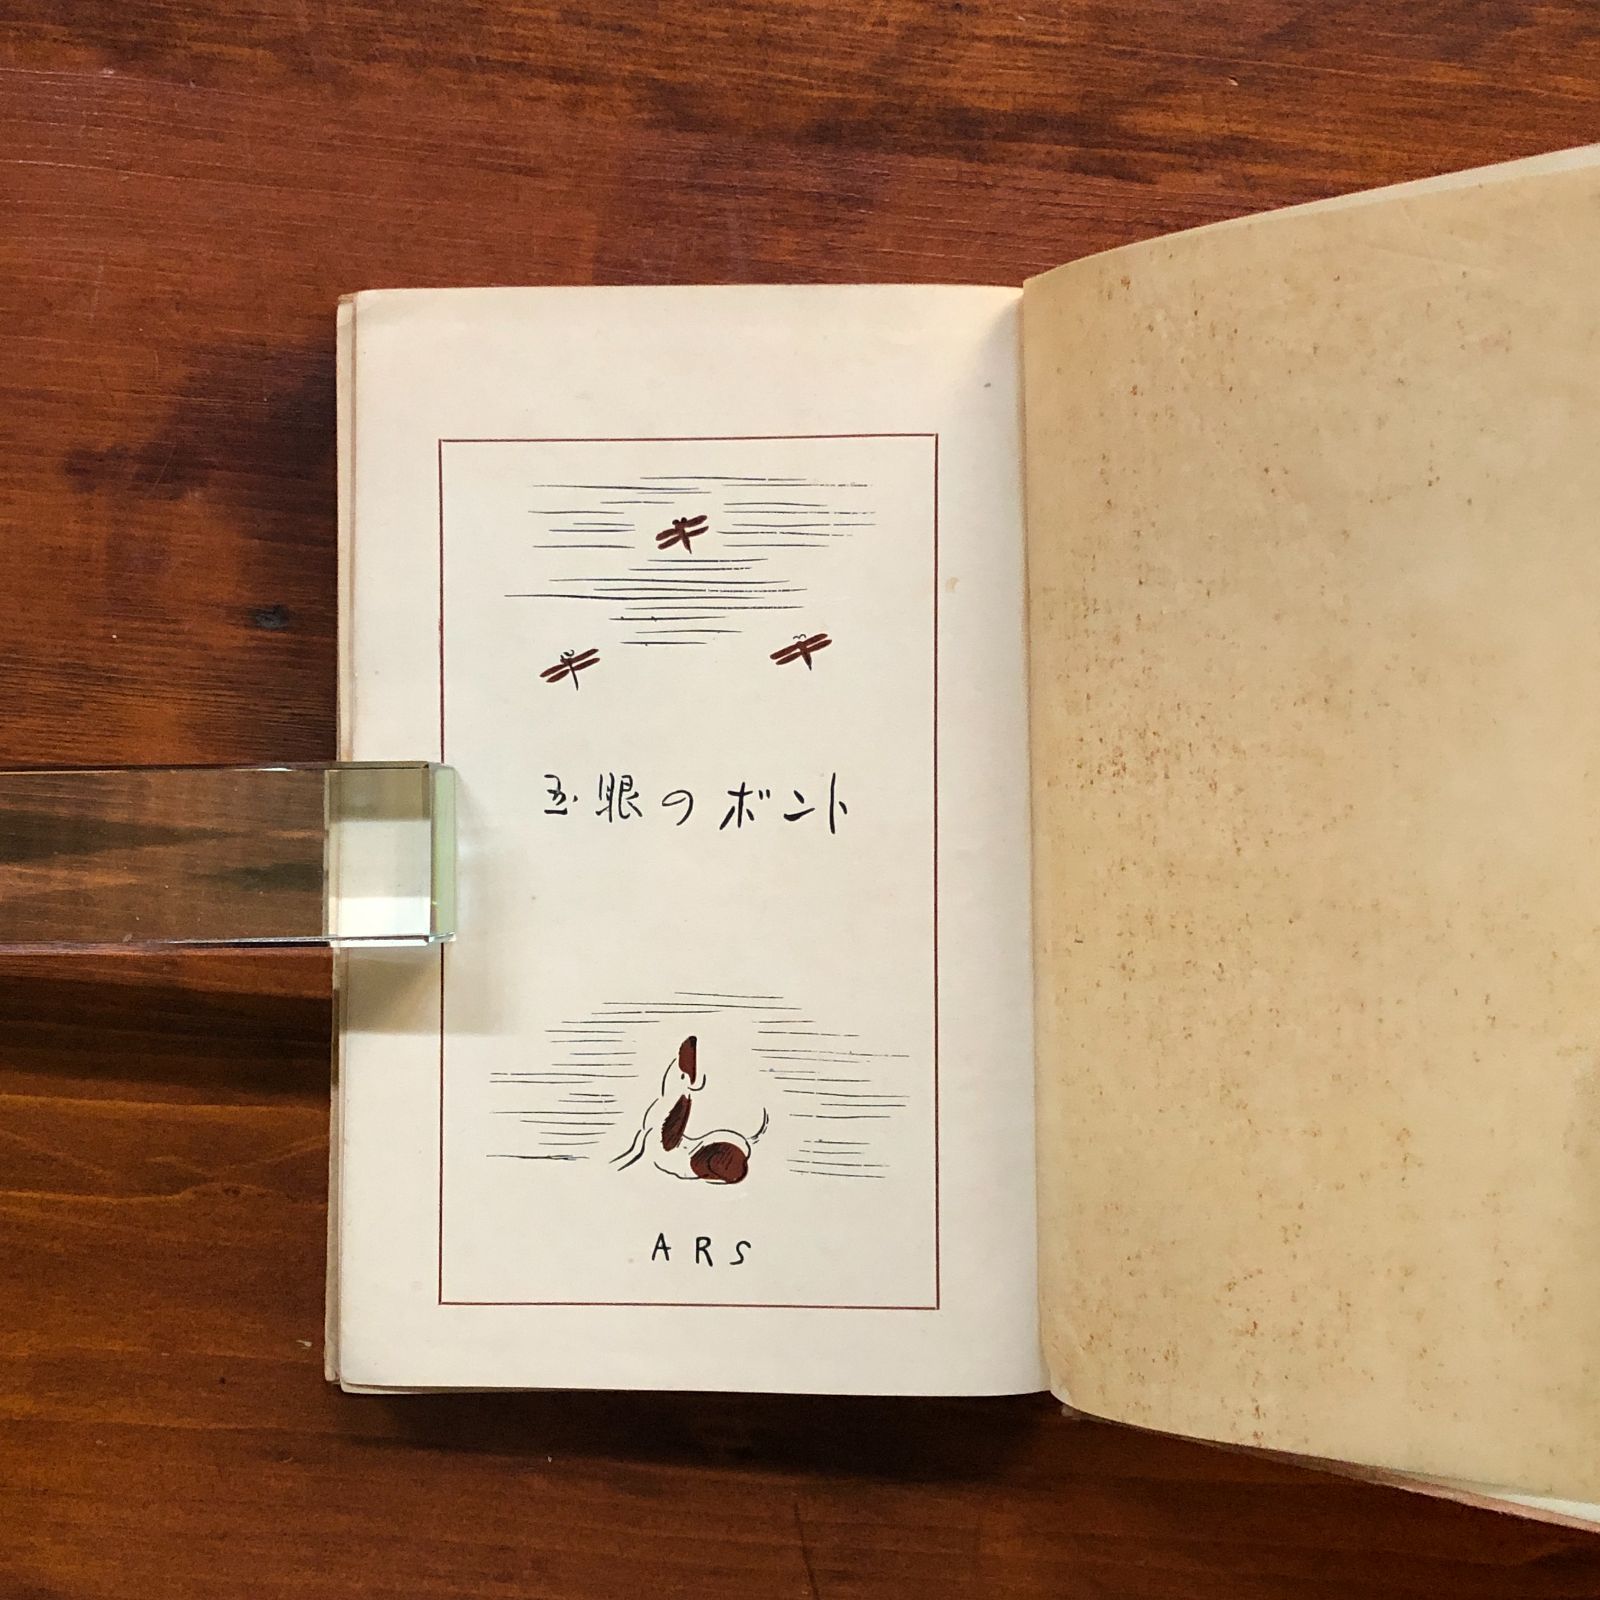 トンボの眼玉
ARS